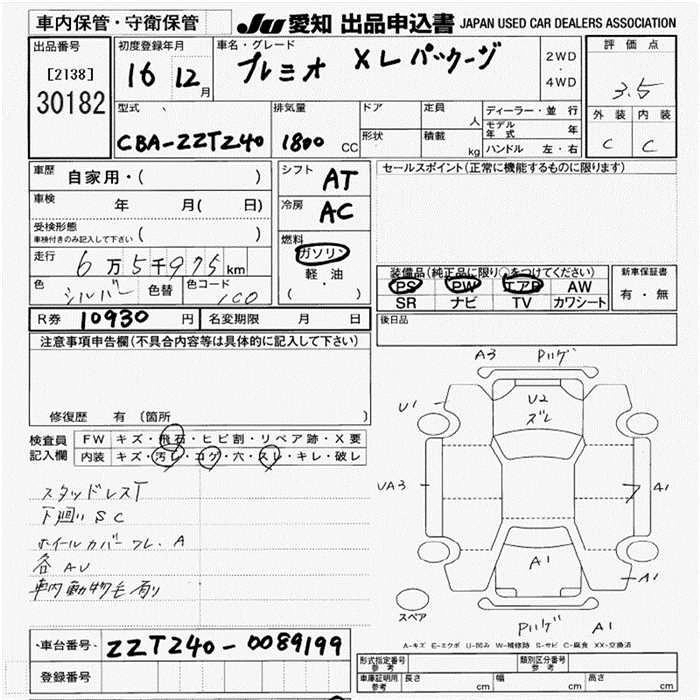 車内保管・守衛保管
JU 愛知 出品申込書 JAPAN USED CAR DEALERS ASSOCIATION
出品番号
[2138]
30182
初度登録年月
16 12月
車名・グレード
プレミオ XLパッケージ
2WD
・
4WD
評価点
3.5
外装 内装
C C
型式
CBA-ZZT240
排気量
1800 CC
ドア
形状
定員
人
積載
kg
ディーラー・並行
モデル年式 年
ハンドル 左・右
車歴 自家用・( )
車検 年 月( 日)
受検形態
車検付きのみ記入して下さい ( )
走行 6万5千975km
色 シルバー 色替 色コード 1C0
R券 10930円 名変期限 月 日
シフト
AT
冷房
AC
燃料
ガソリン
軽・油
( ・ )
セールスポイント(正常に機能するものに限ります)
装備品(純正品に限り○をつけてください)
PS PW エアB AW
SR ナビ TV カワシート
新車保証書
有・無
後日品
注意事項申告欄(不具合内容等は具体的に記入して下さい)
修復歴 有(箇所 )
検査員記入欄
FW キズ・飛石・ヒビ割・リペア跡・X要
内装 キズ・汚レ・コゲ・穴・スレ・キレ・破レ
スタッドレスT
下廻り SC
ホイールカバーワレ. A
各AU
車内動物毛有り
A3 Pハゲ
U1
U2
ズレ
UA3
A1
A1
A1
スペア
Pハゲ A1
A-キズ E-エクボ U-凹み W-補修跡 S-サビ C-腐食 XX-交換済
車台番号 ZZT240-0089199
登録番号
形式指定番号 参考
類別区分番号 参考
車庫証明用 参考 長さ cm 幅 cm 高さ cm